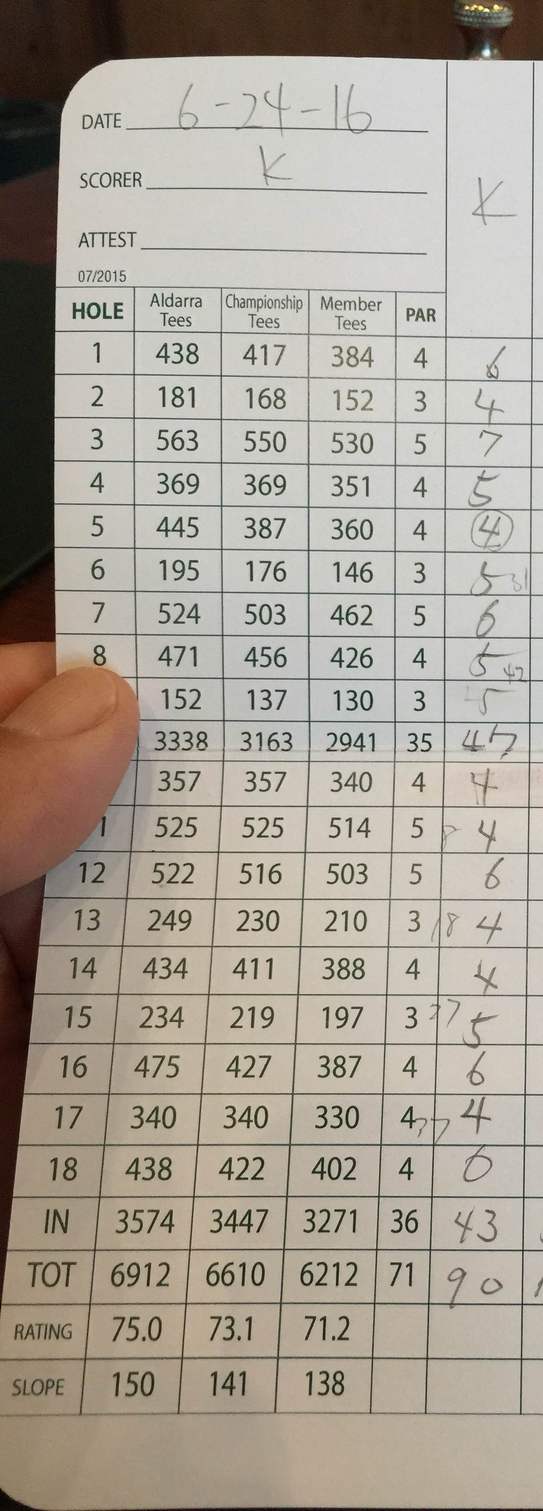 DATE 6-24-16
SCORER K
K
ATTEST
07/2015
HOLE Aldarra Tees Championship Tees Member Tees PAR
1 438 417 384 4 6
2 181 168 152 3 4
3 563 550 530 5 7
4 369 369 351 4 5
5 445 387 360 4 4
6 195 176 146 3 5 31
7 524 503 462 5 6
8 471 456 426 4 5 42
152 137 130 3 5
3338 3163 2941 35 47
357 357 340 4 4
1 525 525 514 5 4
12 522 516 503 5 6
13 249 230 210 3 18 4
14 434 411 388 4 4
15 234 219 197 3 27 5
16 475 427 387 4 6
17 340 340 330 4 4
18 438 422 402 4 6
IN 3574 3447 3271 36 43
TOT 6912 6610 6212 71 90
RATING 75.0 73.1 71.2
SLOPE 150 141 138